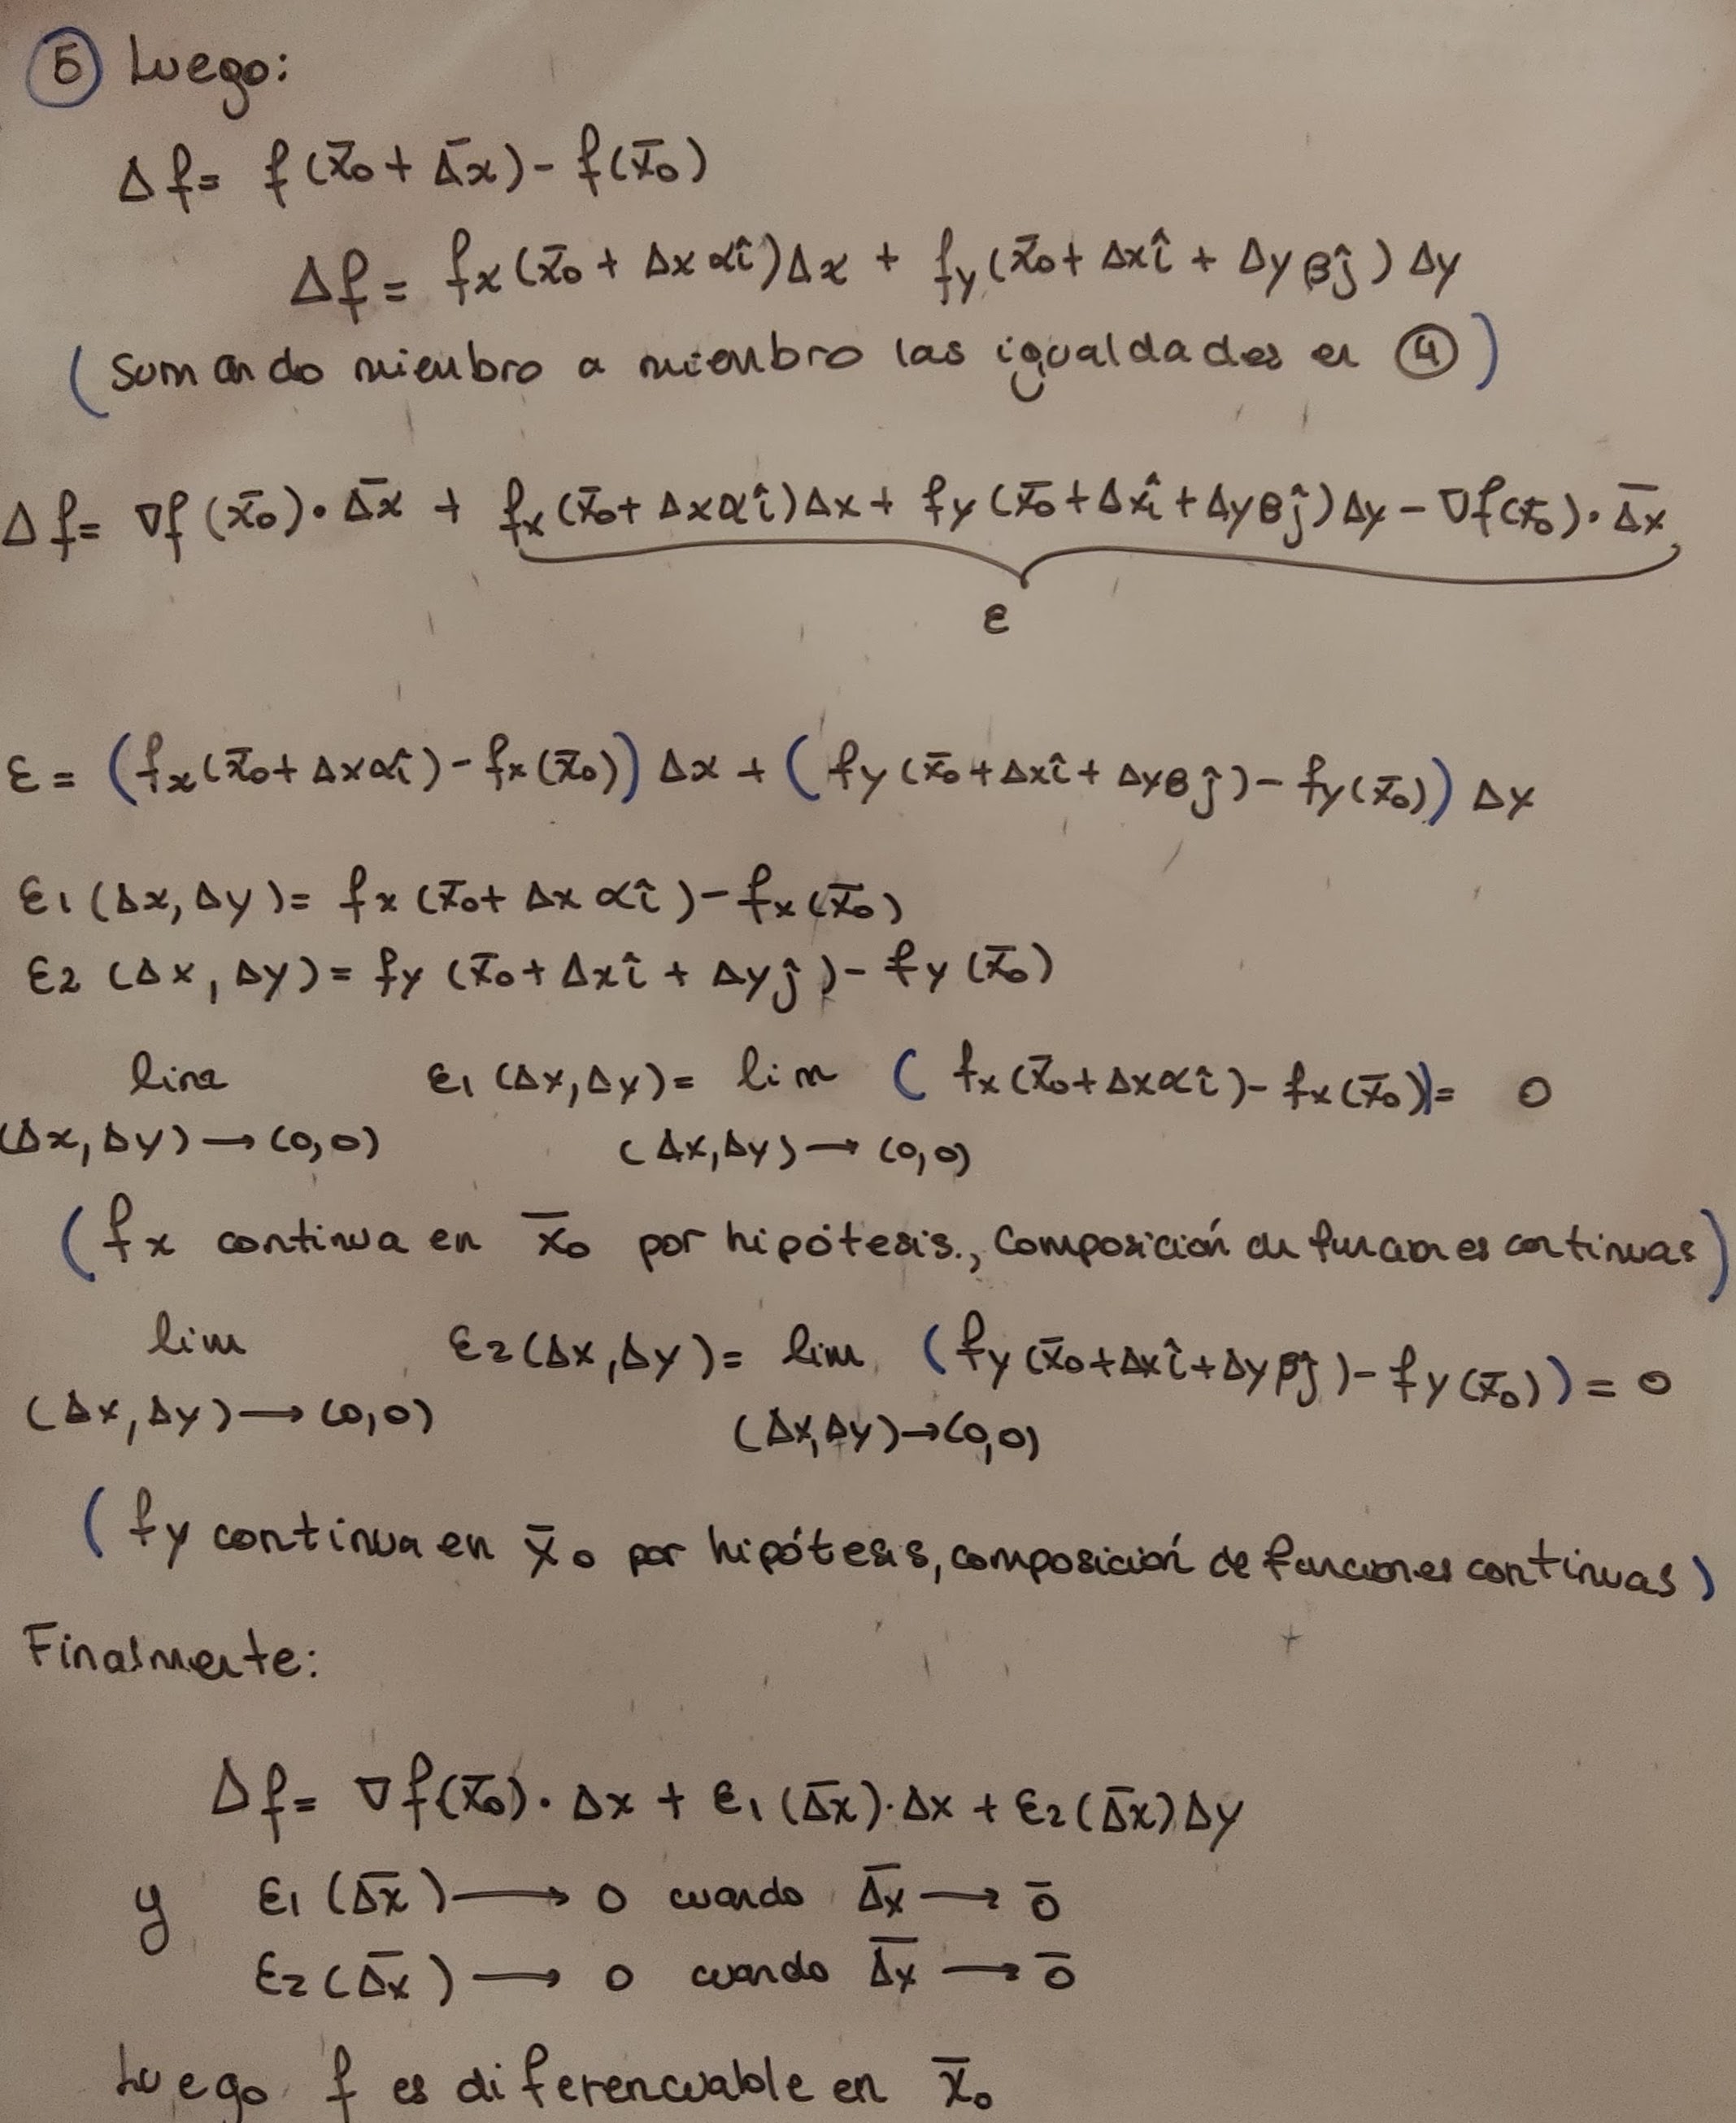 ⑤ Luego:
Δf = f(x̄₀ + Δ̄x) - f(x̄₀)
Δf = fx(x̄₀ + Δx α î)Δx + fy(x̄₀ + Δx î + Δy β ĵ) Δy
(Sumando miembro a miembro las igualdades en ④)
Δf = ∇f(x̄₀) · Δ̄x + fx(x̄₀ + Δx α î)Δx + fy(x̄₀ + Δx î + Δy β ĵ)Δy - ∇f(x̄₀) · Δ̄x
ε
ε = (fx(x̄₀ + Δx α î) - fx(x̄₀)) Δx + (fy(x̄₀ + Δx î + Δy β ĵ) - fy(x̄₀)) Δy
ε1 (Δx, Δy) = fx (x̄₀ + Δx α î) - fx(x̄₀)
ε2 (Δx, Δy) = fy (x̄₀ + Δx î + Δy ĵ) - fy (x̄₀)
lim ε1 (Δx, Δy) = lim ( fx(x̄₀ + Δx α î) - fx(x̄₀)) = 0
(Δx, Δy) → (0,0) (Δx, Δy) → (0,0)
(fx continua en x̄₀ por hipótesis., composición de funciones continuas)
lim ε2 (Δx, Δy) = lim (fy(x̄₀ + Δx î + Δy β ĵ) - fy(x̄₀)) = 0
(Δx, Δy) → (0,0) (Δx, Δy) → (0,0)
(fy continua en x̄₀ por hipótesis, composición de funciones continuas)
Finalmente:
Δf = ∇f(x̄₀) · Δx + ε1 (Δ̄x) · Δx + ε2 (Δ̄x) Δy
y ε1 (Δ̄x) → 0 cuando Δ̄x → 0̄
ε2 (Δ̄x) → 0 cuando Δ̄x → 0̄
Luego f es diferenciable en x̄₀